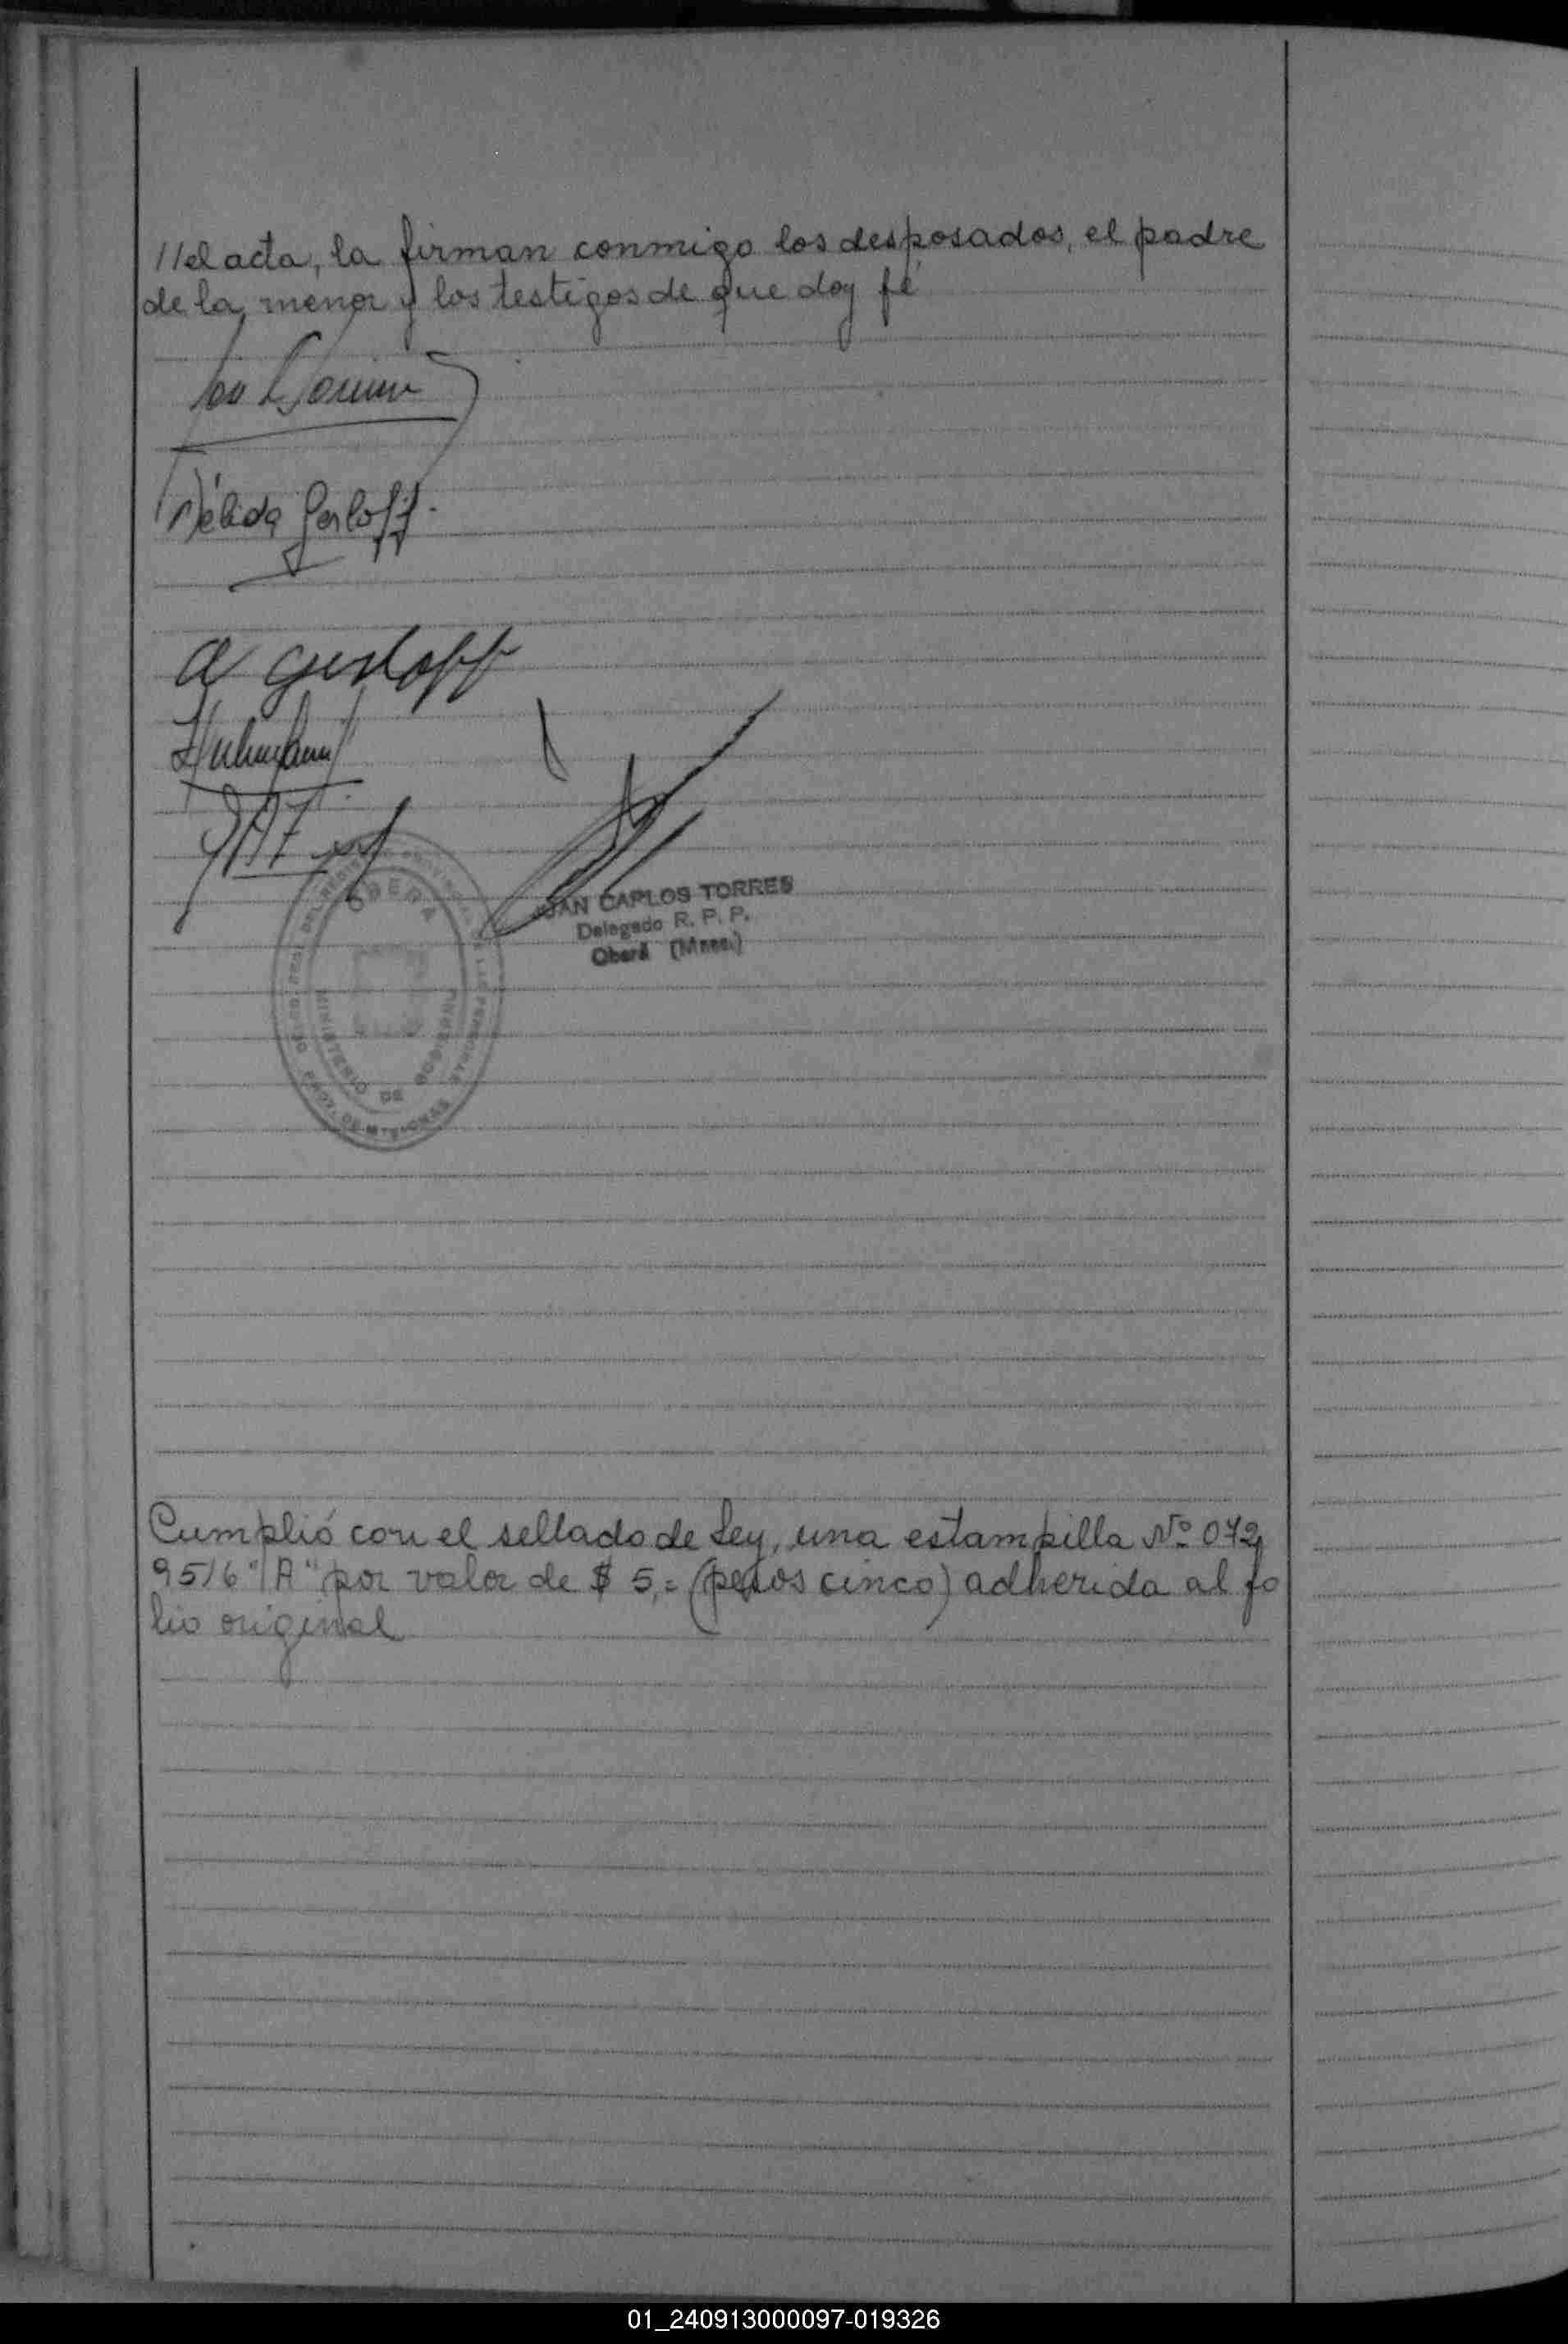 //el acta, la firman conmigo los desposados, el padre
de la menor y los testigos de que doy fé
Nélida Gerloff.
A Gerloff
OBERA
MINISTERIO DE GOBIERNO
JUAN CARLOS TORRES
Delegado R. P. P.
Oberá (Mnes.)
Cumplió con el sellado de Ley, una estampilla Nº 072
9516 "A" por valor de $ 5,= (pesos cinco) adherida al fo
lio original
01_240913000097-019326